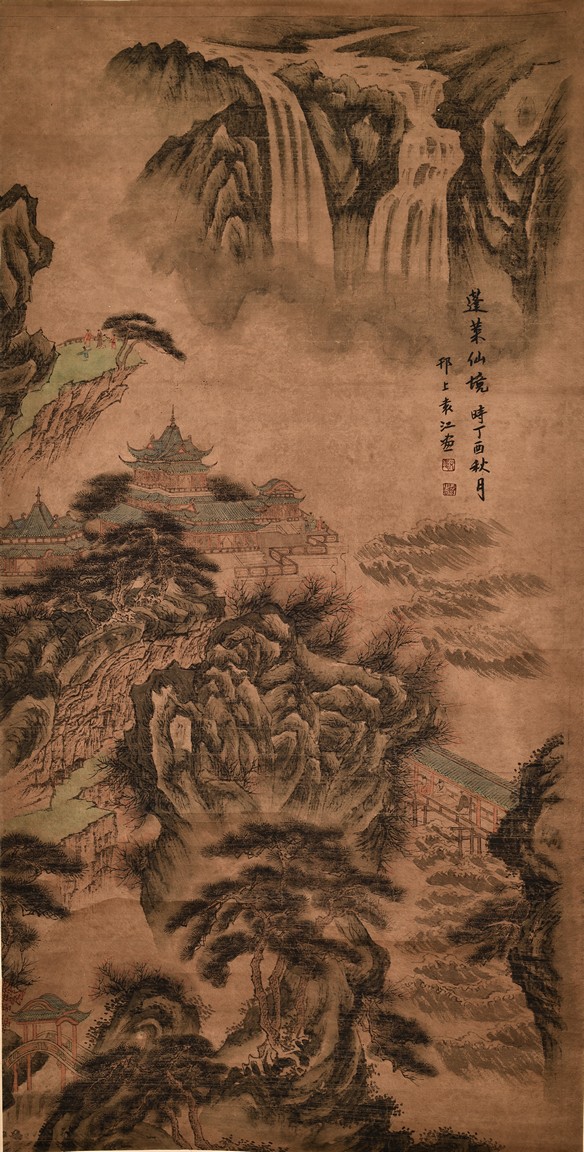 蓬莱仙境 時丁酉秋月
邗上袁江畫